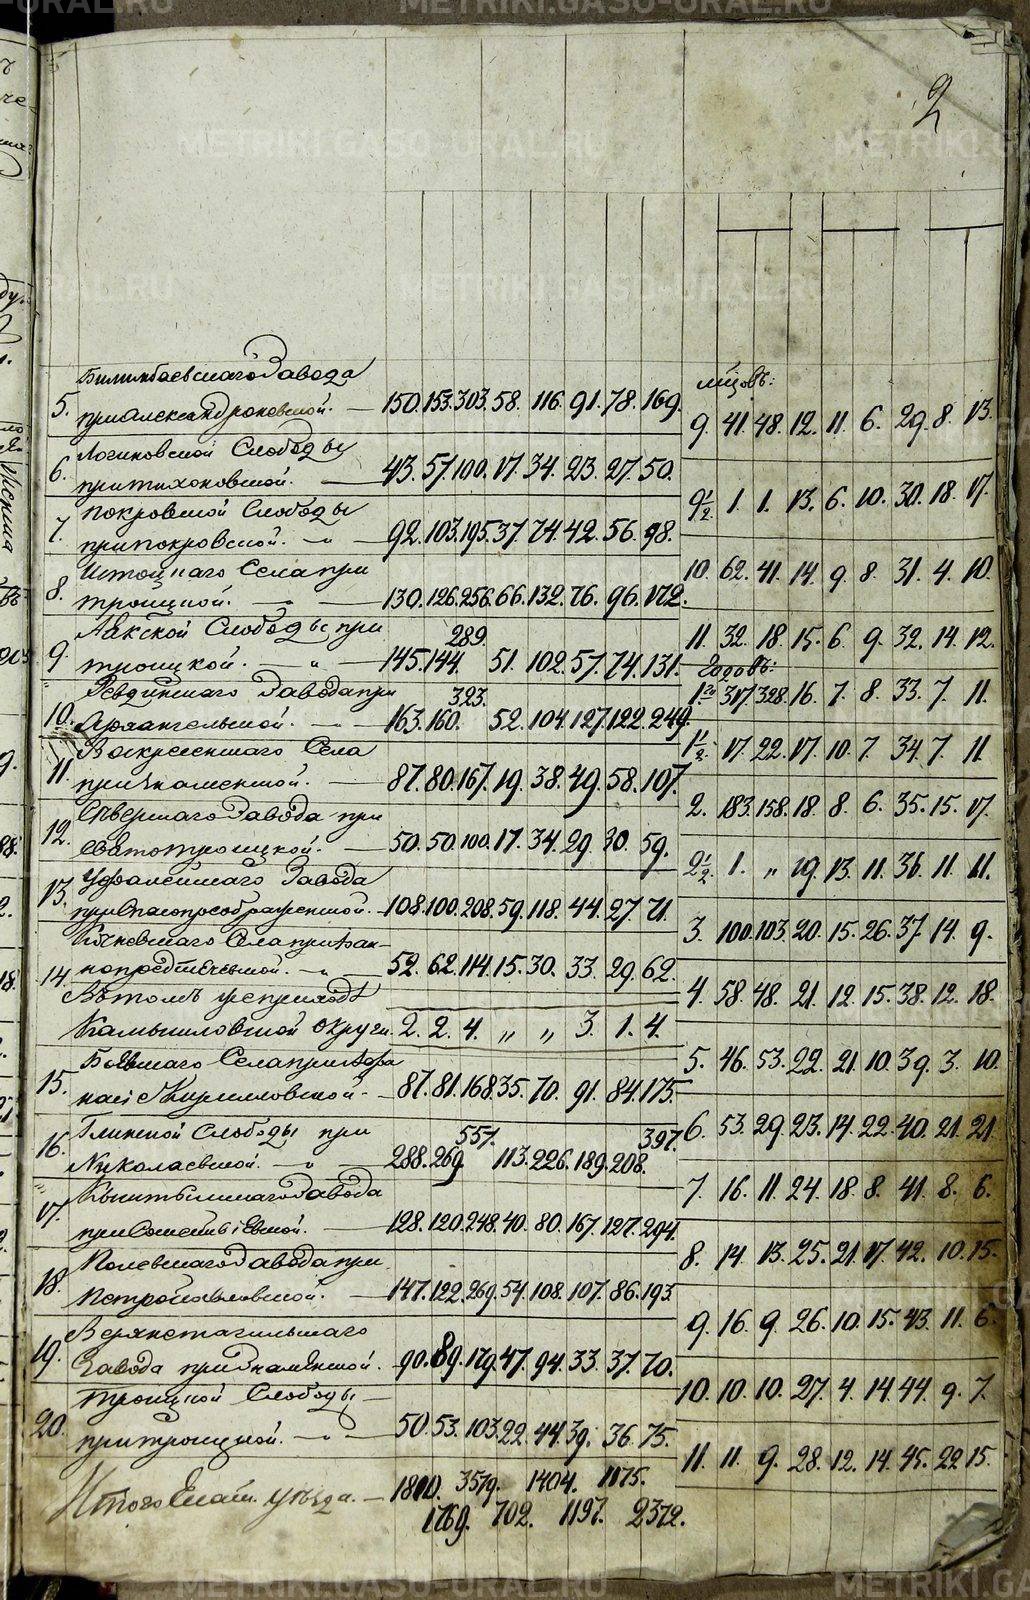 METRIKI.GASO-URAL.RU
2
Билимбаевскаго Завода
5. при Александроневской. — 150. 153. 303. 58. 116. 91. 78. 169.
Логиновской Слободы
6. при тихоновской. — 43. 57. 100. 17. 34. 23. 27. 50.
Покровской Слободы
7. при покровской. — „ — 92. 103. 195. 37. 74. 42. 56. 98.
Истоцкаго Села при
8. троицкой. — 130. 126. 256. 66. 132. 76. 96. 172.
Аятской Слободы при 289.
9. троицкой. — „ — 145. 144. 51. 102. 57. 74. 131.
Ревдинскаго Завода при 323.
10. Архангельской. — 163. 160. 52. 104. 127. 122. 249.
Воскресенскаго Села
11. при знаменской. — 87. 80. 167. 19. 38. 49. 58. 107.
Сѣверскаго Завода при
12. Святотроицкой. — 50. 50. 100. 17. 34. 29. 30. 59.
Уфалейскаго Завода
13. при Спасопреображенской. 108. 100. 208. 59. 118. 44. 27. 71.
14. нопредтечевской. — „ — 52. 62. 114. 15. 30. 33. 29. 62.
Вѣтомъ же приходѣ
Камышловской округи. 2. 2. 4. „ „ 3. 1. 4.
15. Кирилловской — 87. 81. 168. 35. 70. 91. 84. 175.
Глинской Слободы при 557. 397.
16. Николаевской. — „ — 288. 269. 113. 226. 189. 208.
Кыштымскаго Завода
17. при Сошествiевской. — 128. 120. 248. 40. 80. 167. 127. 294.
Полевскаго Завода при
18. Петропавловской. — 147. 122. 269. 54. 108. 107. 86. 193.
Верхнетагильскаго
19. Завода при Знаменской. 90. 89. 179. 47. 94. 33. 37. 70.
Троицкой Слободы —
20. при троицкой. — „ — 50. 53. 103. 22. 44. 39. 36. 75.
Итого Екат. уѣзда. — 1810. 3579. 1404. 1175.
1769. 702. 1197. 2372.
мѣсяцовъ:
9. 41. 48. 12. 11. 6. 29. 8. 13.
9½. 1. 1. 13. 6. 10. 30. 18. 17.
10. 62. 41. 14. 9. 8. 31. 4. 10.
11. 32. 18. 15. 6. 9. 32. 14. 12.
Годовъ:
1.го 317. 328. 16. 7. 8. 33. 7. 11.
1½. 17. 22. 17. 10. 7. 34. 7. 11
2. 183. 158. 18. 8. 6. 35. 15. 17.
2½. 1. „ 19. 13. 11. 36. 11. 11.
3. 100. 103. 20. 15. 26. 37. 14. 9.
4. 58. 48. 21. 12. 15. 38. 12. 18.
5. 46. 53. 22. 21. 10. 39. 3. 10.
6. 53. 29. 23. 14. 22. 40. 21. 21.
7. 16. 11. 24. 18. 8. 41. 8. 6.
8. 14. 13. 25. 21. 17. 42. 10. 15.
9. 16. 9. 26. 10. 15. 43. 11. 6.
10. 10. 10. 27. 4. 14. 44. 9. 7.
11. 11. 9. 28. 12. 14. 45. 22. 15.